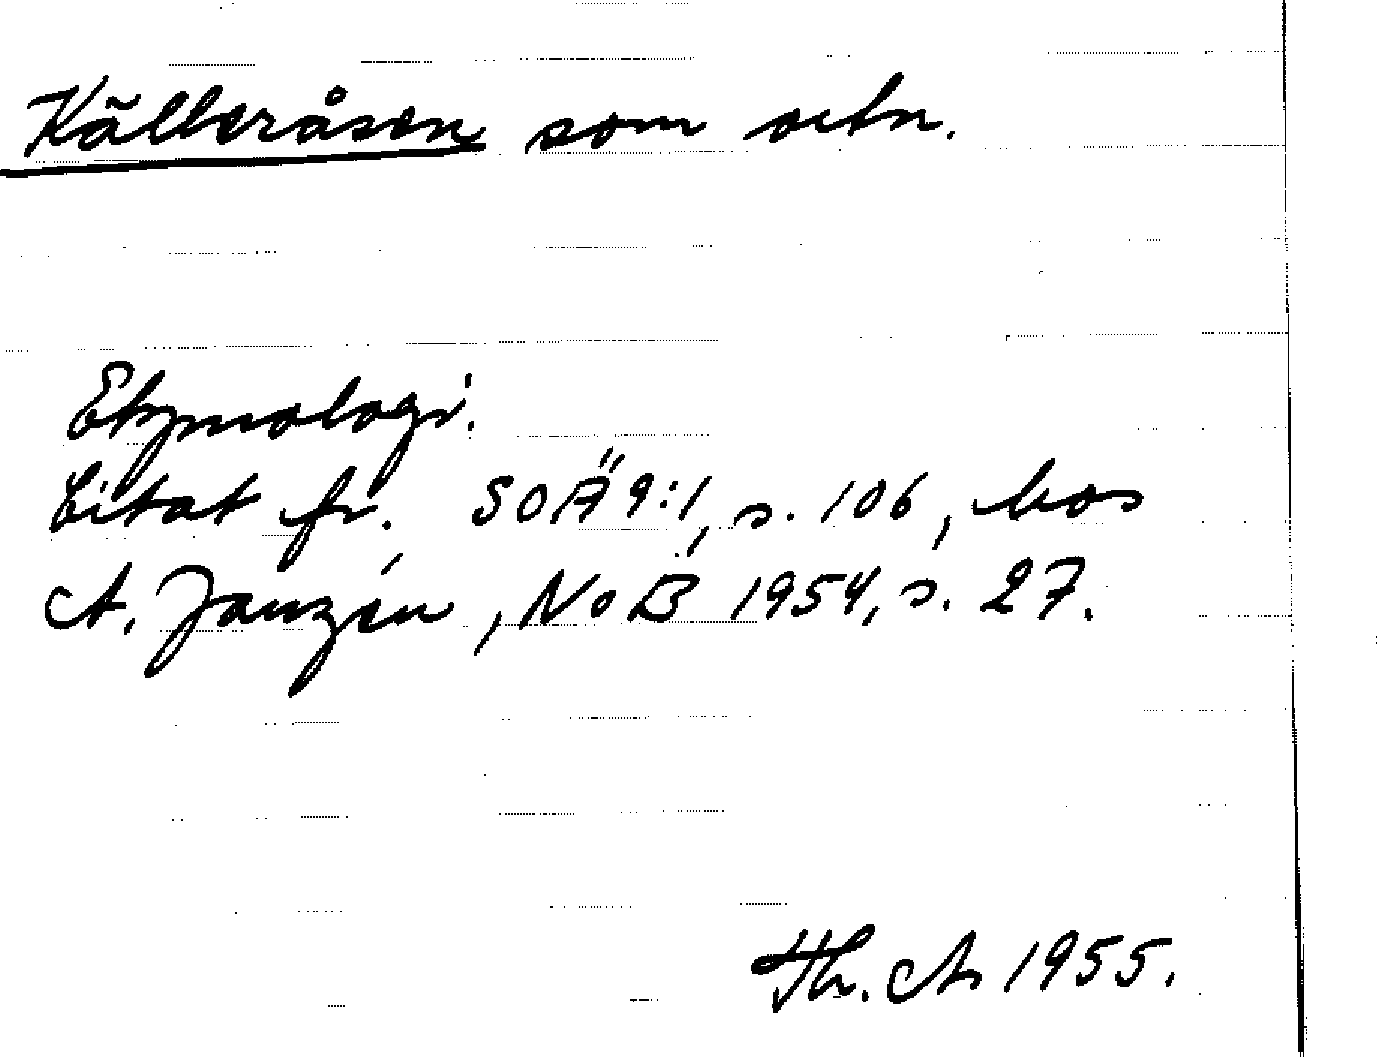 Källeråsen som ortn.
Etymologi.
Citat fr. SOÄ 9:1, s. 106, hos
A. Janzén, NoB 1954, s. 27.
Th. A. 1955.